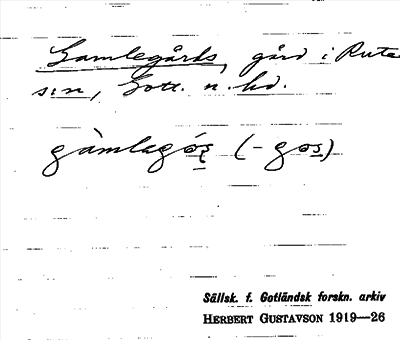 Gamlegårds, gård i Rute
sn, Gotl. n. hd.
gàmlagọ́ṣ (-gos)
Sällsk. f. Gotländsk forskn. arkiv
HERBERT GUSTAVSON 1919—26